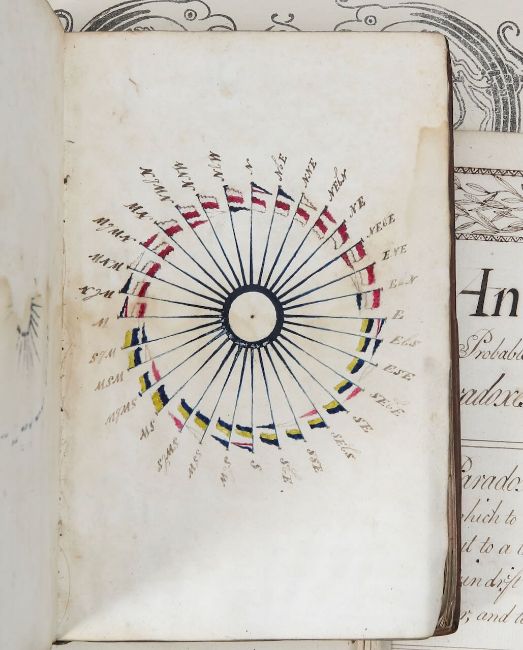 N
NbE
NNE
NEbN
NE
NEbE
ENE
EbN
E
EbS
ESE
SEbE
SE
SEbS
SSE
SbE
S
SbW
SSW
SWbS
SW
SWbW
WSW
WbS
W
WbN
WNW
NWbW
NW
NWbN
NNW
NbW
An
Probable
radoxes
Parado
which to
ut to a
and t